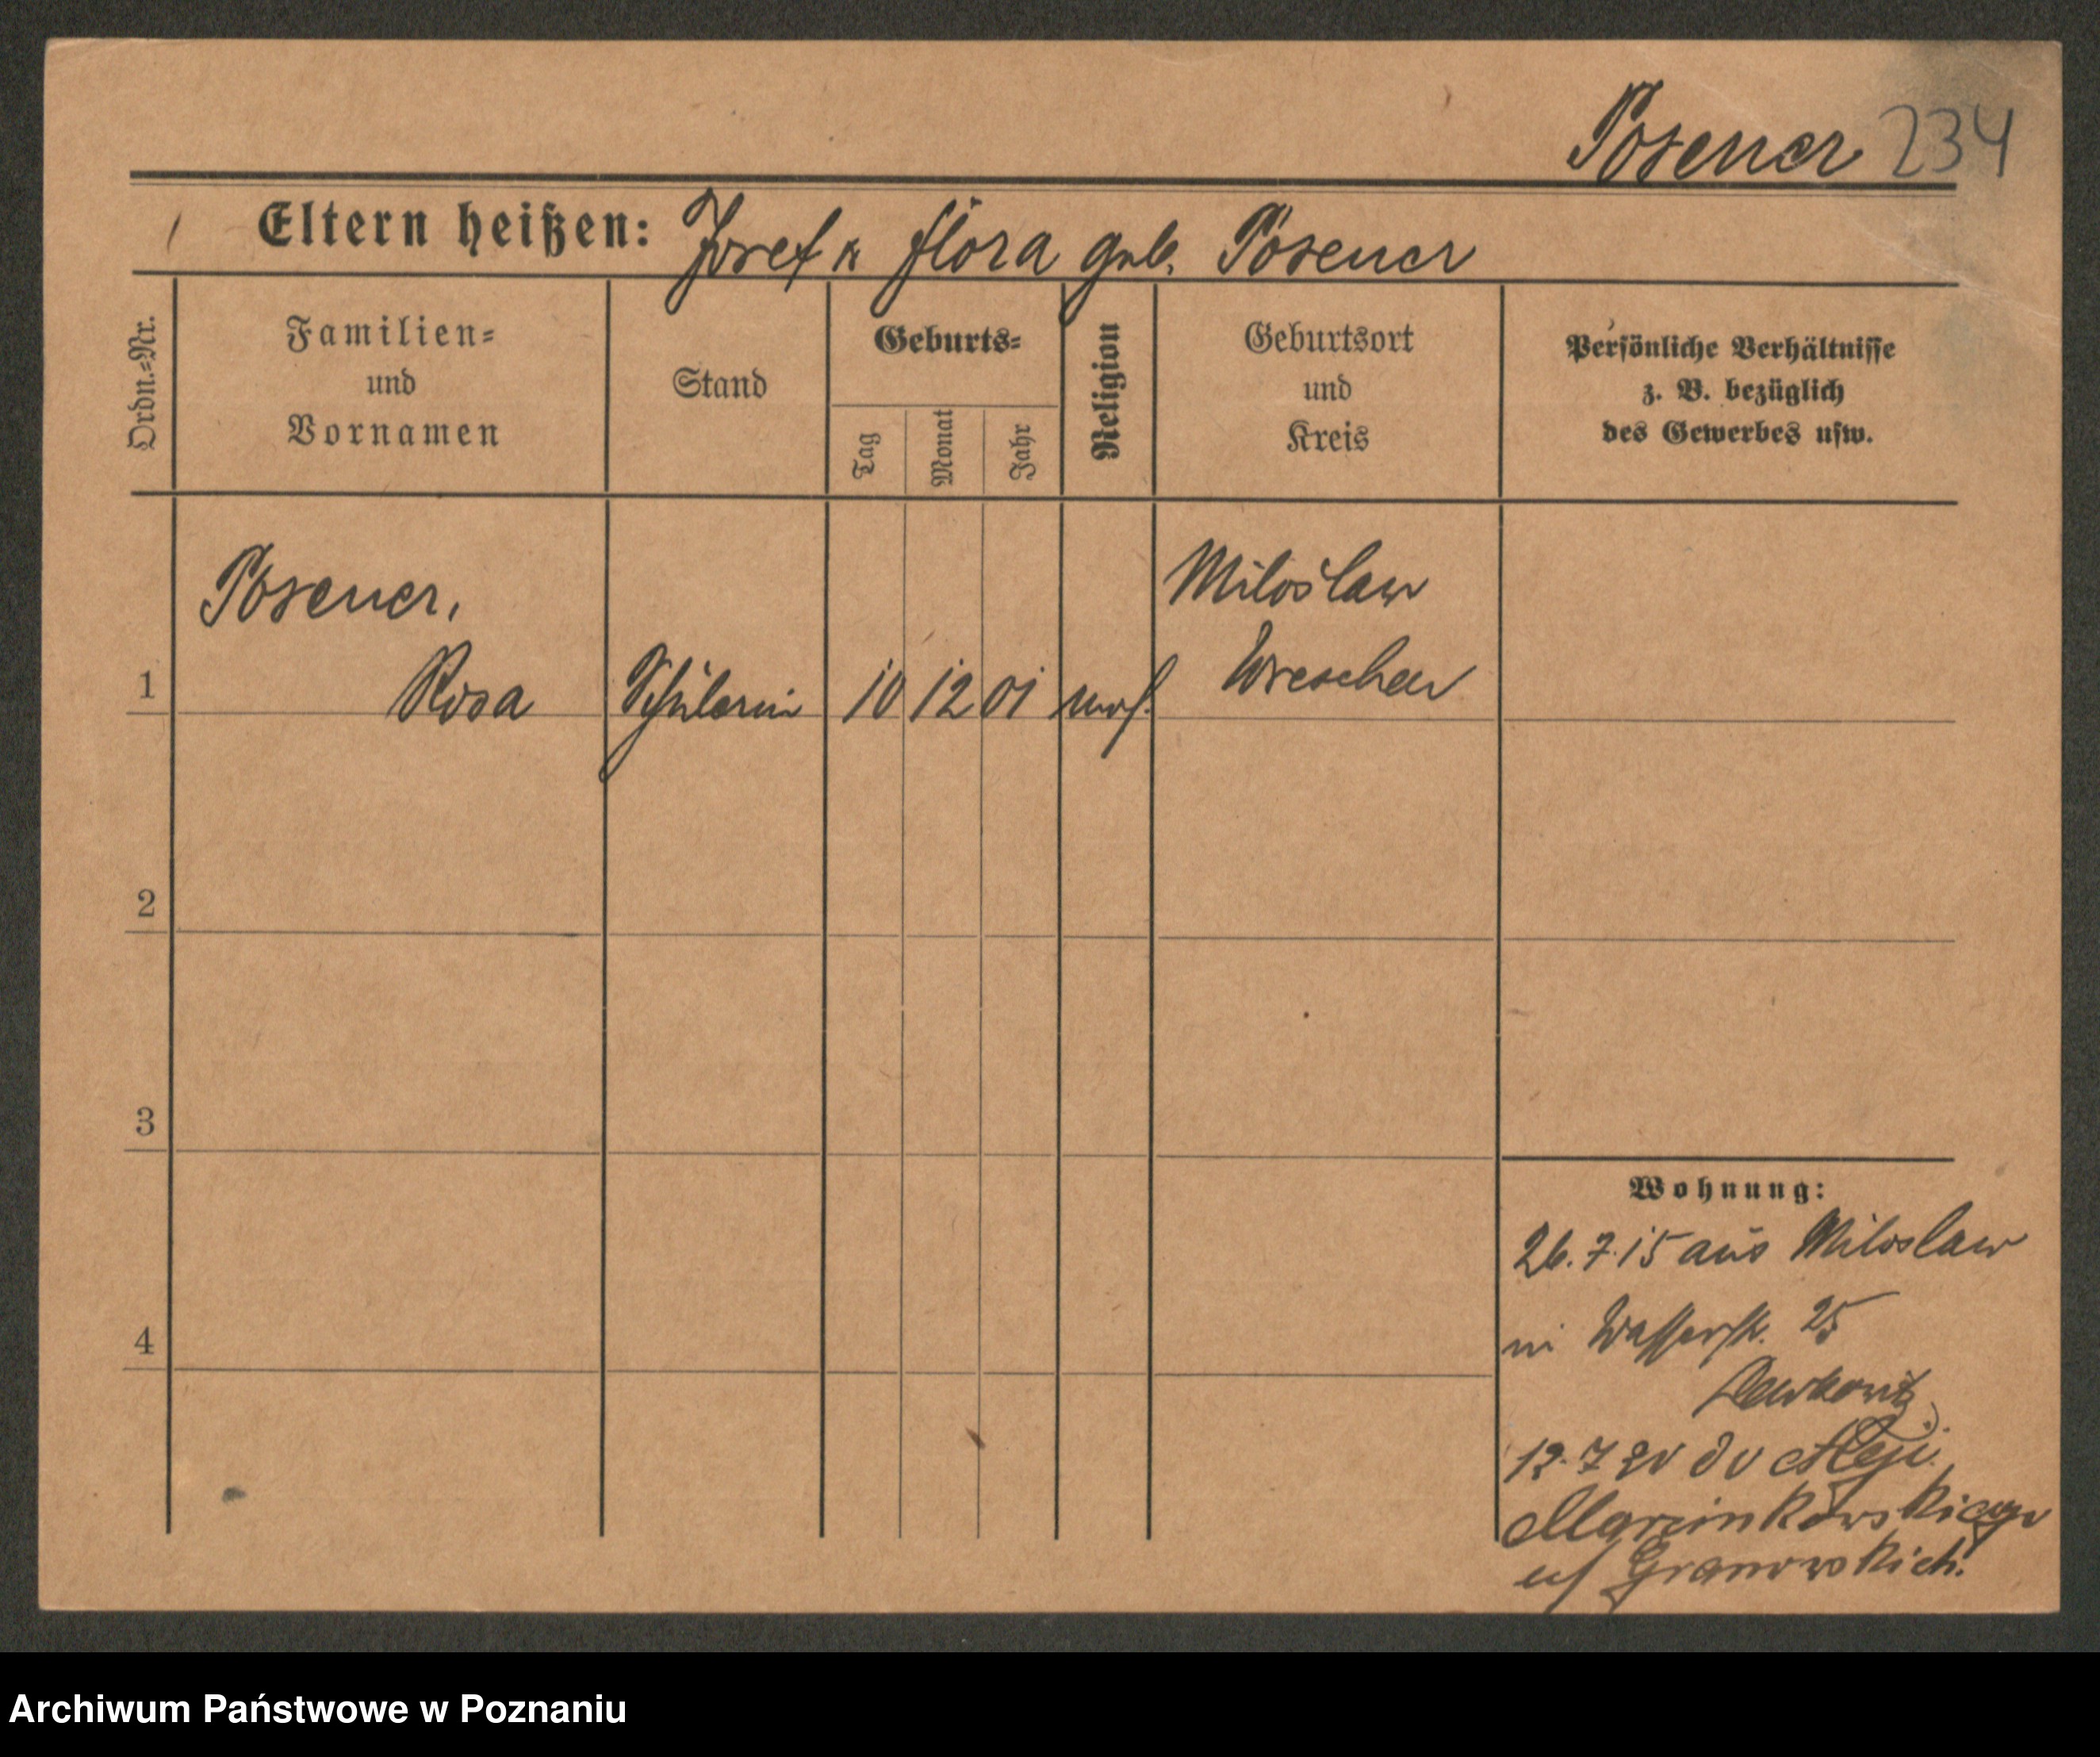 Posener 234
Eltern heißen: Josef u Flora geb. Posener
Ordn.-Nr.
Familien-
und
Vornamen
Stand
Geburts-
Tag
Monat
Jahr
Religion
Geburtsort
und
Kreis
Persönliche Verhältnisse
z. B. bezüglich
des Gewerbes usw.
Posener,
Miloslaw
1 Rosa Schülerin 10 12 01 mos. Wreschen
2
3
4
Wohnung:
26.7.15 aus Miloslaw
in Wasserstr. 25
12.7 20 do Aleji
Marcinkowskiego
u/ Granowskich.
Archiwum Państwowe w Poznaniu